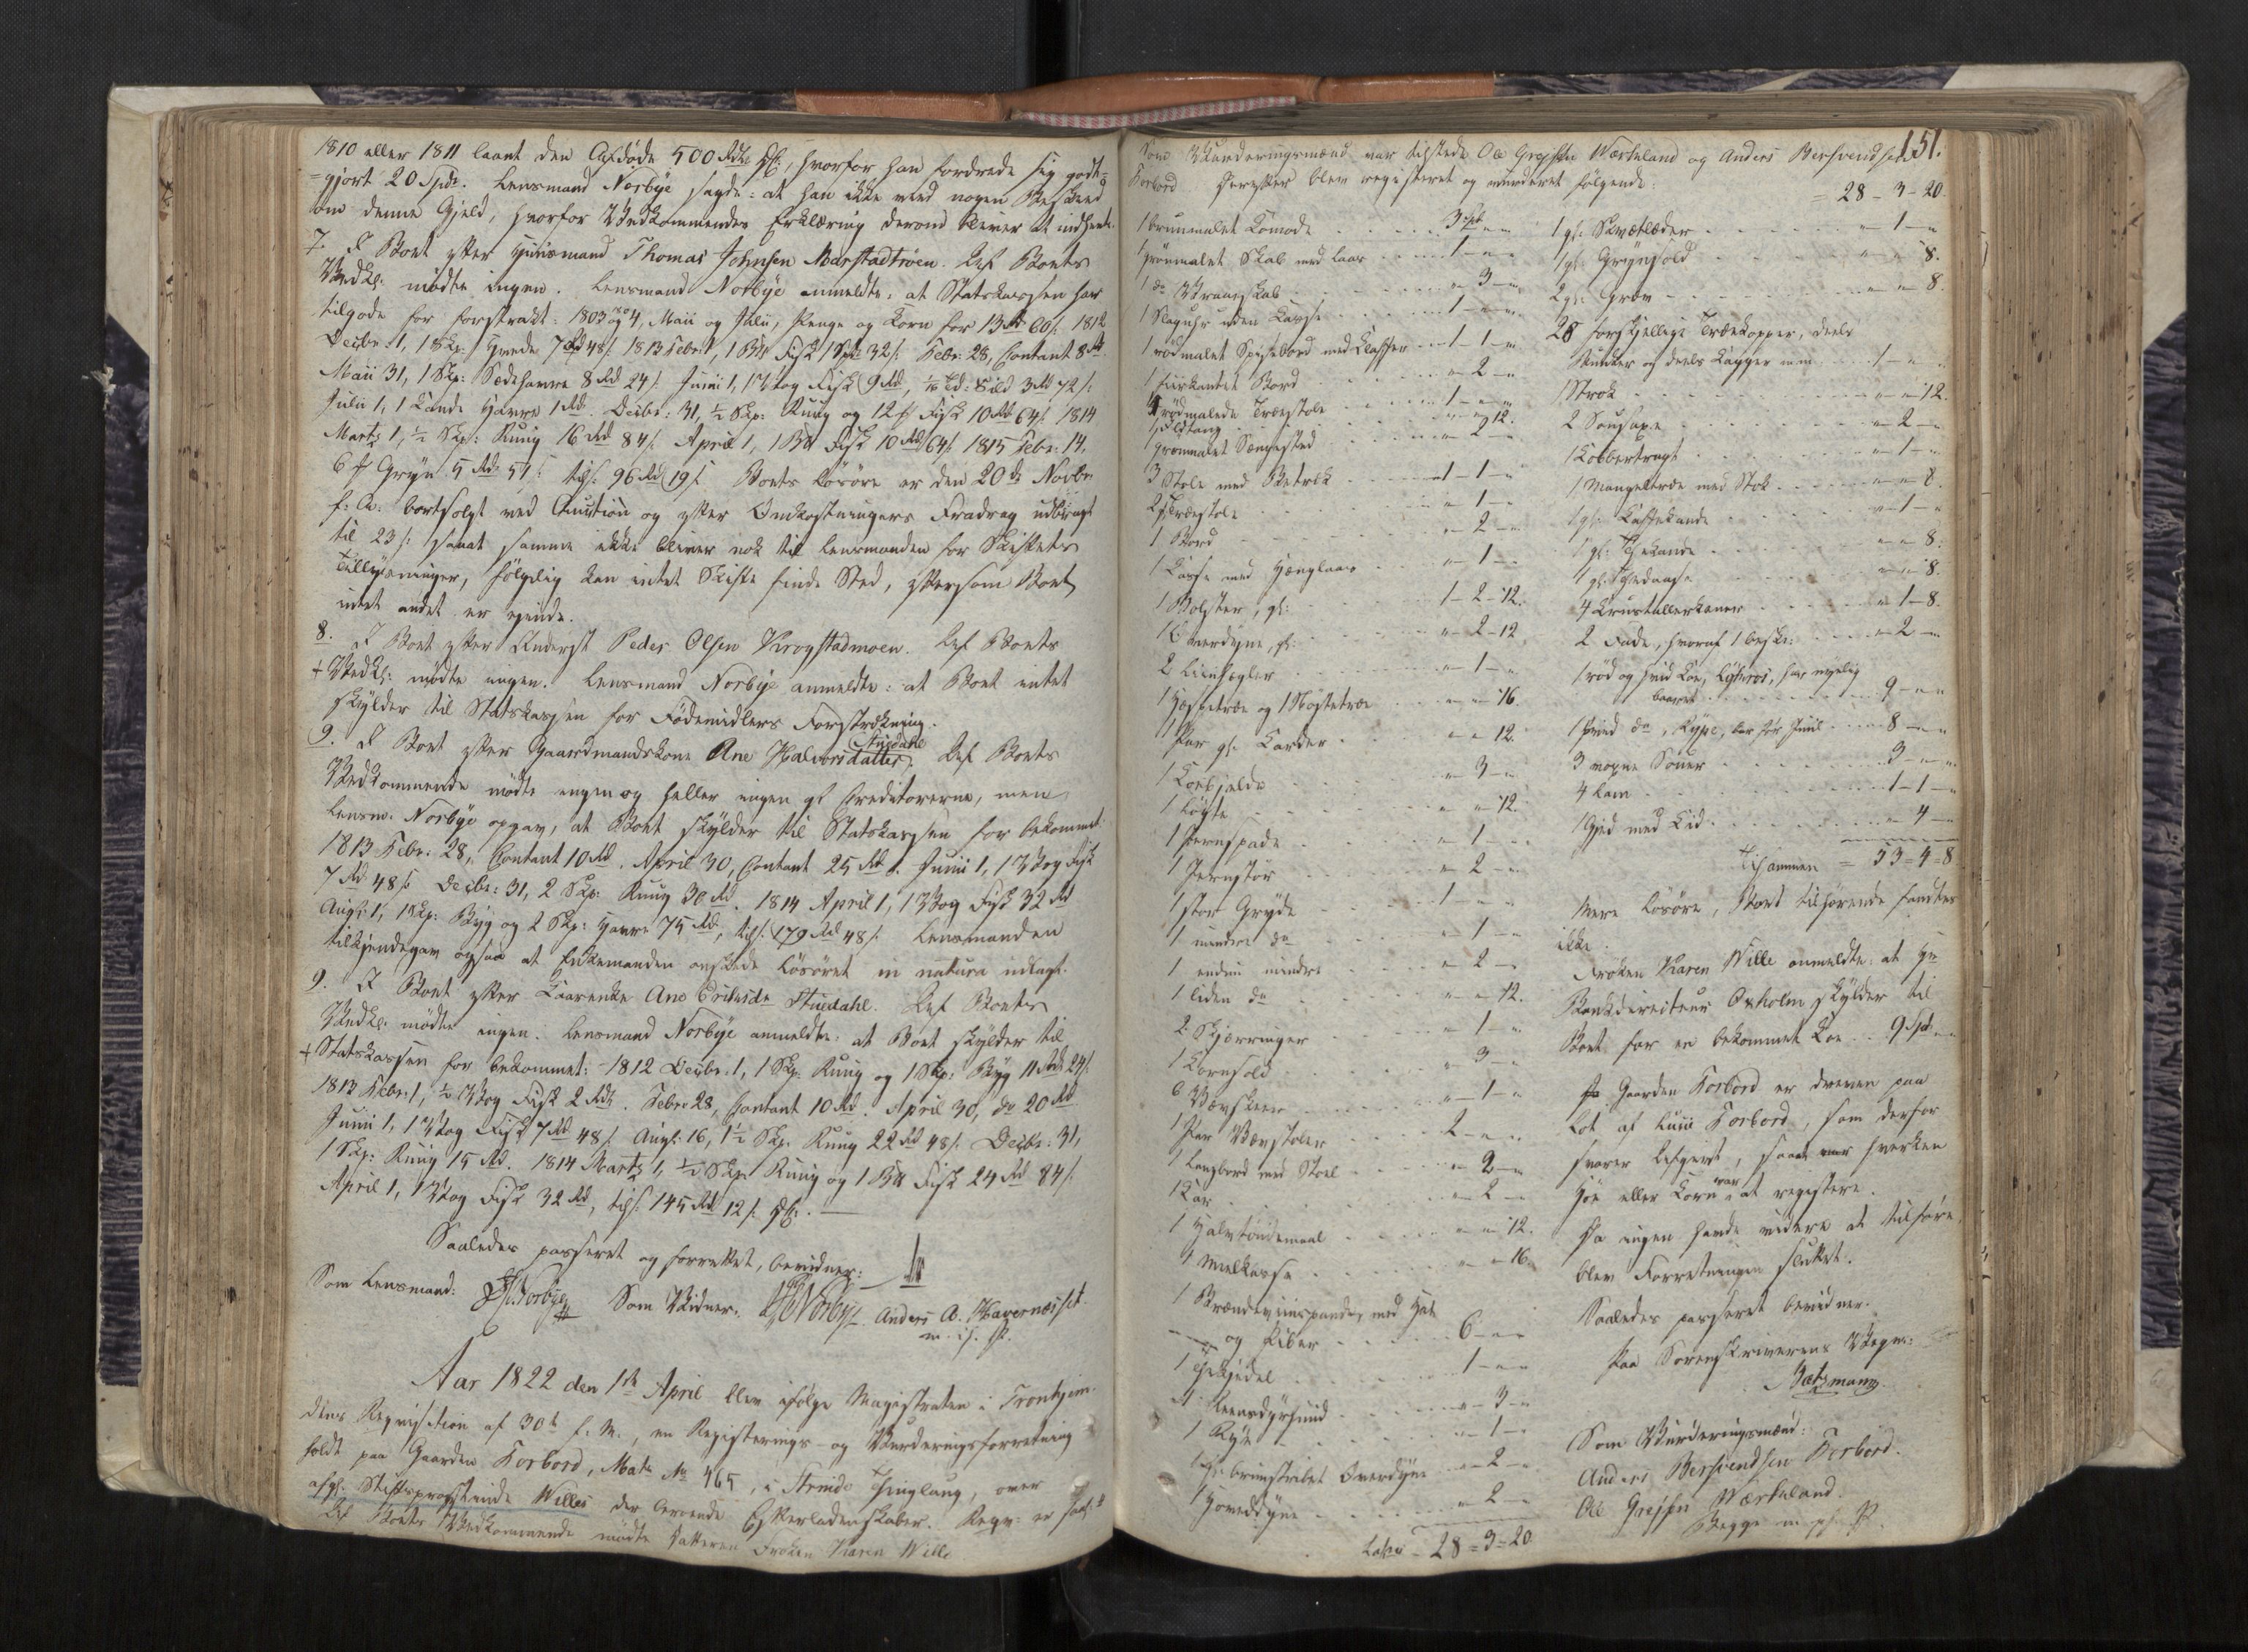 1810 eller 1811 laant den Afdøde 500 Rdlr DC:, hvorfor han fordrede sig godt-
-gjort 20 Spdr. Lensmand Norbye sagde: at han ikke veed nogen Beskeed
om denne Gjeld, hvorfor Vedkommendes Erklæring derom bliver at indhente.
7. I Boet efter Huusmand Thomas Johnsen Marstadtrøen. Af Boets
Vedk: mødte ingen. Lensmand Norbye anmeldte: at Statskassen har
tilgode for forstrakt: 1803 og 4, Maii og Julii, Penge og Korn for 13 Rd 60 s. 1812
Decbr: 1, 1 Skp: 7 Rd 48 s. 1813 Febr: 1, 1 Bm Fisk 1 Rd 32 s. Febr: 28, Contant 8 Rd.
Maii 31, 1 Skp: Sædehavre 8 Rd 24 s. Junii 1, 1 Vog Fisk 9 Rd, Td: Sild 3 Rd 72 s.
Julii 1, 1 Kande Havre 1 Rd. Decbr: 31, ½ Skp: Ruug og 12 Fisk 10 Rd 64 s. 1814
Marts 1, ½ Skp: Ruug 16 Rd 84 s. April 1, 1 Bm Fisk 10 Rd 64 s. 1815 Febr: 14,
6 Gryn 5 Rd 51 s. tils: 96 Rd 19 s. Boets Løsøre er den 20de Novbr
f: A: bortsolgt ved Auction og efter Omkostningers Fradrag udbragt
til 23 s. saaat samme ikke bliver nok til Lensmanden for Skiftets
Tillysninger, følgelig kan intet Skifte finde Sted, eftersom Boet
intet andet er eiende.
8. I Boet efter Inderst Peder Olsen Krogstadmoen. Af Boets
+ Vedk: mødte ingen. Lensmand Norbye anmeldte: at Boet intet
skylder til Statskassen for Fødemidlers Forstrækning.
9. I Boet efter Gaardmandskone Ane Halvorsdatter Stuedahl. Af Boets
Vedkommende mødte ingen og heller ingen af Creditorerne, men
Lensm. Norbye opgav, at Boet skylder til Statskassen for bekommet:
1813 Febr: 28, Contant 10 Rd. April 30, Contant 25 Rd. Junii 1, 1 Vog Fisk
7 Rd 48 s. Decbr: 31, 2 Skp: Ruug 30 Rd. 1814 April 1, 1 Vog Fisk 32 Rd
Aug: 1, 1 Skp: Byg og 2 Skp: Havre 75 Rd, tils: 179 Rd 48 s. Lensmanden
tilkjendegav ogsaa at Enkemanden ønskede Løsøret in natura udlagt.
9. I Boet efter Kaarenke Ane Eriksdr Stuedahl. Af Boets
Vedk: mødte ingen. Lensmand Norbye anmeldte: at Boet skylder til
+ Statskassen for bekommet: 1812 Decbr: 1, 1 Skp: Ruug og 1 Skp: Byg 11 Rd 24 s.
1813 Febr: 1, ½ Vog Fisk 2 Rd. Febr: 28, Contant 10 Rd. April 30, do 20 Rd
Junii 1, 1 Vog Fisk 7 Rd 48 s. Aug: 16, 1½ Skp: Ruug 22 Rd 48 s. Decbr: 31,
1 Skp: Ruug 15 Rd. 1814 Marts 1, ½ Skp Ruug og 1 Bm Fisk 24 Rd 84 s.
April 1, 1 Vog Fisk 32 Rd, tils: 145 Rd 12 s.
Saaledes passeret og forrettet, bevidner:
Som Lensmand: Norbye Som Vidner: Norbye Anders A. Havernæsset
m. i. P.
Aar 1822 den 1ste April blev ifølge Magistraten i Trondhjem
dens Reqvisition af 30te f. M., en Registerings- og Vurderingsforretning
holdt paa Gaarden Forbord, Matr No 465, i Strinde Thinglaug, over
afgl: Stiftsprovstinde Willes der beroende Efterladenskaber.
Af Boets Vedkommende mødte Datteren Frøken Karen Wille
151.
Som Vurderingsmænd var tilstede Ole Grejssen Værkeland og Anders Bersvendsen
Forbord. Derefter blev registeret og vurderet følgende:
1 bruunmalet Komode 3 Spd " "
1 grønmalet Skab med Laas 1 - " - "
1 do Vraaeskab " - 3 - "
1 Slaguhr uden Kasse 1 - " - "
1 rødmalet Spisebord med Klaffer 1 - 1 - "
1 fiirkantet Bord " - 2 - "
rødmalede Træestole 1 - " - "
1 Ildtang " - " 12.
1 grønmalet Sængested " - 2 - "
3 Stole med Betræk 1 - 1 - "
2 Træestole " - 1 - "
1 Bord " - 2 - "
1 Kasse med Hænglaas " - 1 - "
1 Bolster, gl: 1 - 2 - 12.
1 Overdyne, gl: " - 2 - 12
2 Liinhegler " - 1 - "
1 Hespetræe og 1 Nøstetræe " - " - 16.
1 Par gl: Karder " - " 12.
1 " - 3 - "
1 Løgte " - " - 12.
1 Jernspade " - 1 - "
1 Jernstør " - 2 - "
1 stor Gryde 1 - " - "
1 mindre do " - 1 - "
1 endnu mindre " - 2 - "
1 liden do " - " - 12.
2 Skjæringer " - 1 - "
1 Kornsold " - 3 - "
6 Vævskeer " - 1 - "
1 Par Vævstoler 2 - " - "
1 Langbord med Stoel " - 2 - "
1 Kar " - 2 - "
1 Halvtøndemaal " - " - 12.
1 Melkasse " - " - 16.
1 Brændeviinspande, med Hat
og Piber 6 - " - "
1 Thekjedel 1 - " - "
" - 3 - "
1 Rye " - 1 - "
1 gl: bruunstribet Overdyne " - 2 - "
1 Hoveddyne " - 2 - "
Latus - 28 = 3 = 20.
= 28 - 3 - 20
1 gl: Skvætlæder " - 1 - "
1 gl: Grynsold " - " 8.
2 gl: " - " 8.
28 forskjellige Trækopper, deels
og deels Lægger m.m. 1 - "
1 Strok " - " - 12.
2 Sousaxe " - 2 - "
1 Kobbertragt " - 1 - "
1 Mangeltræe med Stok " - " 8.
1 gl: Kaffekande " - 1 - "
1 gl: Thekande " - " 8.
1 gl: Thedaase " - " 8.
4 " - 1 - 8.
2 Fade, hvoraf 1 besk: " - 2 - "
1 rød og hvid Koe, Lykros, har nyelig
baaret 9 - " - "
1 do, Rype, 8 - " - "
3 voxne Souer 3 - " - "
4 Lam 1 - 1 - "
1 Gjed med Kid " - 4 - "
Tilsammen = 53 = 4 = 8
Mere Løsøre, Boet tilhørende fandtes
ikke.
Frøken Karen Wille anmeldte: at Hr
Bankdirecteur Oxholm skylder til
Boet for en bekommet Koe 9 Spd "
Gaarden Forbord er dreven paa
Lot af Lusie Forbord, som derfor
svarer Afgivt, saaat hverken
Høe eller Korn var at registere.
Da ingen havde videre at tilføre,
blev Forretningen sluttet.
Saaledes passeret bevidner.
Paa Sorenskriverens Vegne:
Bætzmann
Som Vurderingsmænd:
Anders Bersvendsen Forbord.
Ole Grejssen Værkeland.
Begge m. p. P.